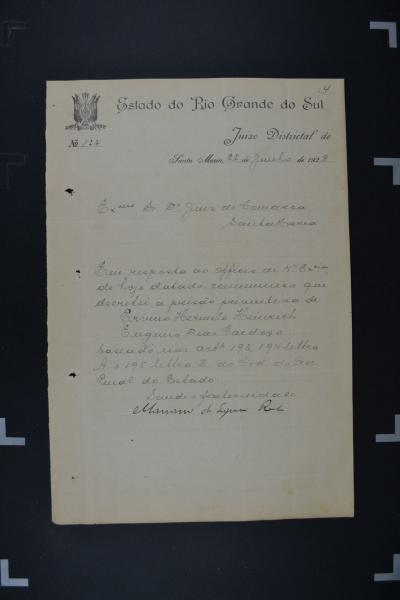 4
Estado do Rio Grande do Sul
Juizo Districtal de
Nº 122
Santa Maria, 22 de Junho de 1928
Exmo Sr. Dr. Juiz de Comarca
Santa Maria
Em resposta ao officio de V. Excia,
de hoje datado, communico que
decretei a prisão preventiva de
Ervino Hermito Heinrich
Eugenio Dias Cardozo
baseado nos artºs 193, 194 lettra
A e 195 lettra D. do Cod. do Proc
Penal do Estado.
Saude e fraternidade